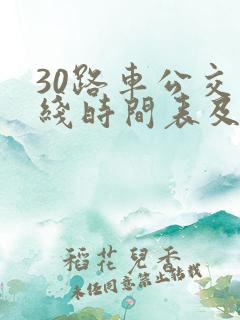 30路車公交
綫時間表及
稻花兒香
未任同意禁止轉載